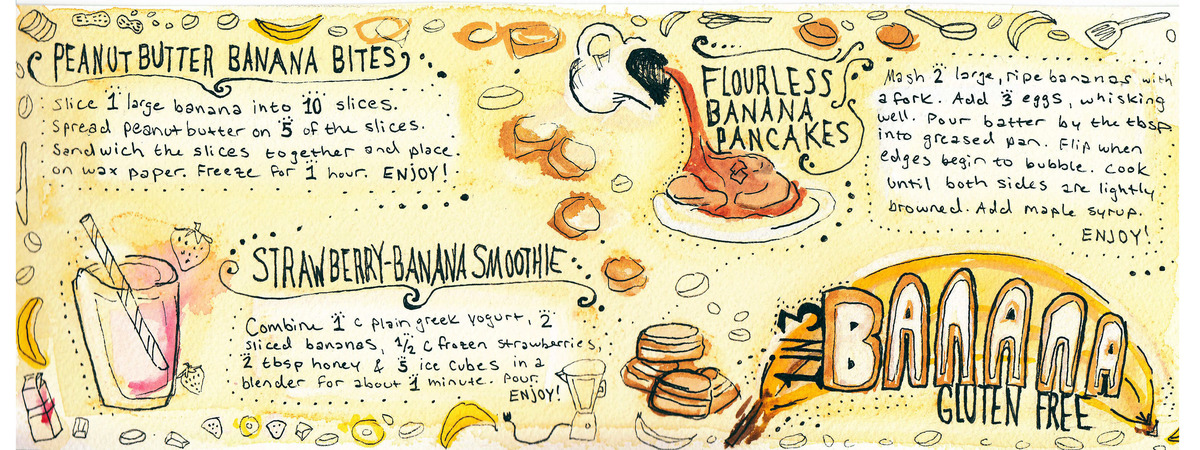 PEANUT BUTTER BANANA BITES
Slice 1 large banana into 10 slices.
Spread peanut butter on 5 of the slices.
Sandwich the slices together and place
on wax paper. Freeze for 1 hour. ENJOY!
STRAWBERRY-BANANA SMOOTHIE
Combine 1 c plain greek yogurt, 2
sliced bananas, 1/2 c frozen strawberries,
2 tbsp honey & 5 ice cubes in a
blender for about 1 minute. Pour.
ENJOY!
FLOURLESS
BANANA
PANCAKES
Mash 2 large, ripe bananas with
a fork. Add 3 eggs, whisking
well. Pour batter by the tbsp
into greased pan. Flip when
edges begin to bubble. Cook
until both sides are lightly
browned. Add maple syrup.
ENJOY!
1 IN 3
BANANA
GLUTEN FREE